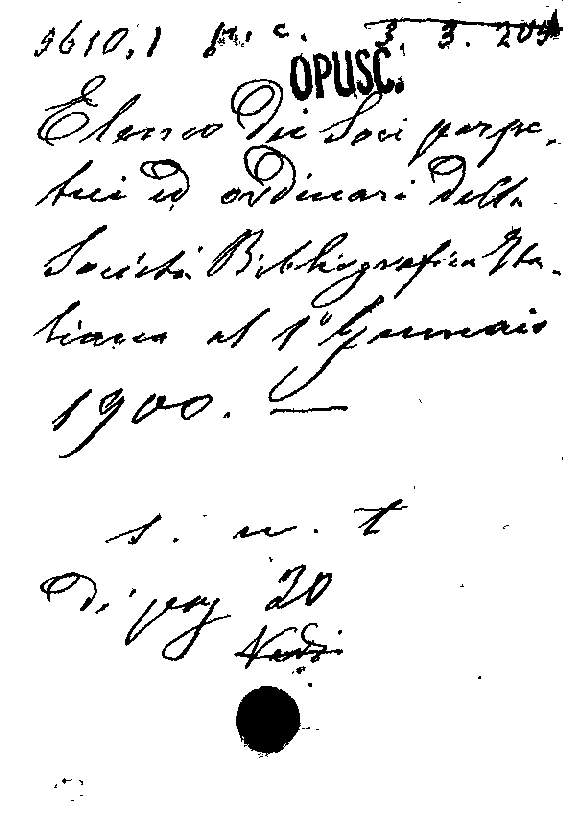 9610.1 M. C. 3. 3. 209
OPUSC.
Elenco Dei Soci perpe-
tui ed ordinari della
Società Bibliografica Ita-
liana al 1° Gennaio
1900. —
s. n. t
Di pag 20